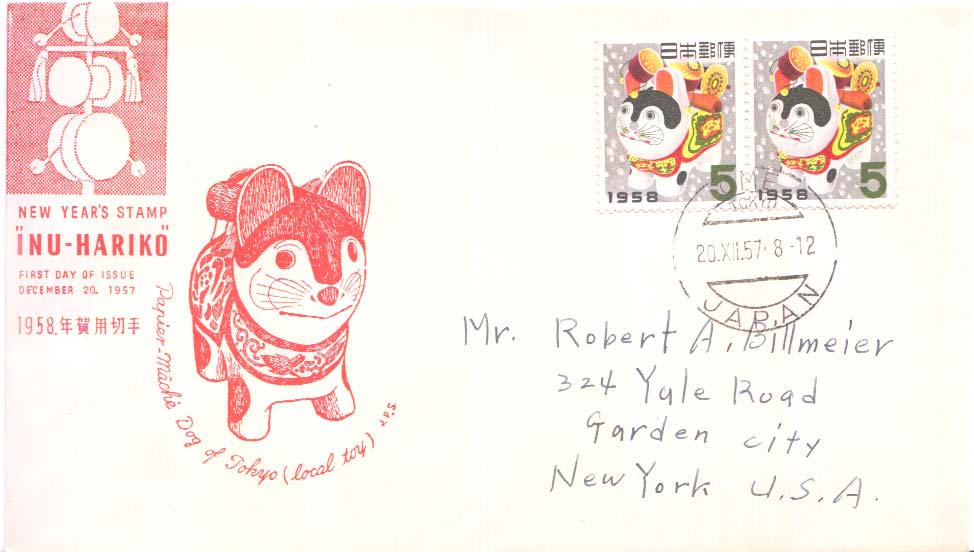 NEW YEAR'S STAMP
"INU-HARIKO"
FIRST DAY OF ISSUE
DECEMBER 20. 1957
1958.年賀用切手
Papier-Mâché Dog of Tokyo (local toy) J.P.S
日本郵便
1958 5
日本郵便
1958 5
TOKYO
20.XII.57. 8-12
JAPAN
Mr. Robert A. Billmeier
324 Yale Road
Garden city
New York U.S.A.